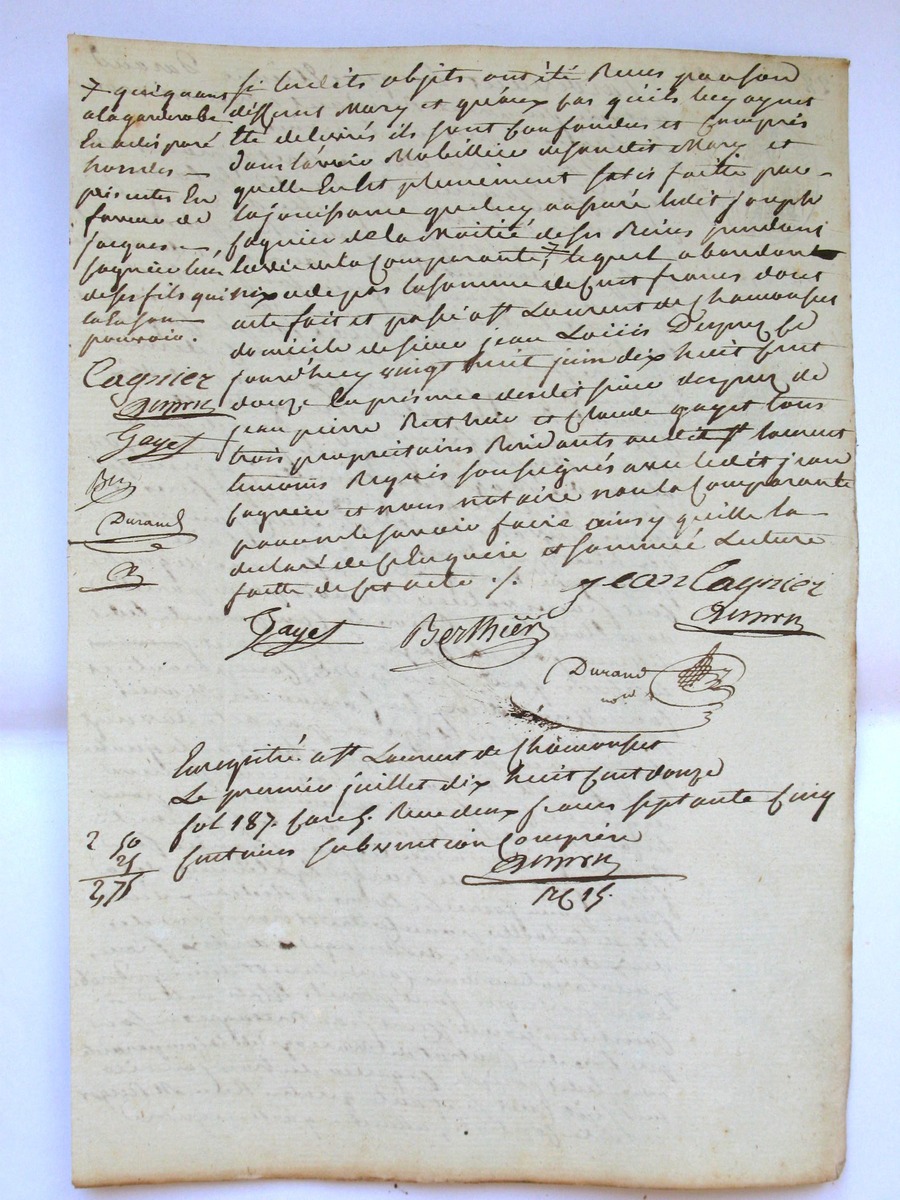 si lesdits objets ont été Reçus par son
different Mary et qu'aux cas qu'ils luy ayent
été delivrés ils sont Confondus et Compris
dans l'avoir Mobillier de sondit Mary et
quelle En est plenement satisfaitte par
la jouissance que luy a assuré ledit joseph
Cagnier de la Moitié de ses Biens pendant
la vie de la Comparante, 7 lequel abandont
n'exede pas la somme de Cent francs dont
acte fait et passé a St Laurent de Chamousset
domicile de sieur jean Louis Duprez Ce
jourd'huy vingt huit juin dix huit Cent
douze En présence desdit sieur duprez de
jean pierre Berthier et Claude gayet tous
trois propriétaires Residants audit St laurent
temoins Requis soussignés avec ledit jean
Cagnier et nous notaire non la Comparante
pour ne le savoir faire ainsy quelle la
declaré de Ce Enquise et sommée Lecture
faitte de Cet acte ./.
7 quiquant
a la garderobe
En a disparé
hardes
présentes En
faveur de
jacques
Cagnier l'un
de ses fils qui
la En son
pouvoir.
Cagnier
Gayet
Ber
Durand
Jean Cagnier
Gayet
Berthier
Durand
not
Enregistré a St Laurent de Chamousset
Le premier juillet dix huit Cent douze
fol 187. Case 5. Reçu deux francs septante Cinq
Centimes subvention Comprise
2 50
25
2,75